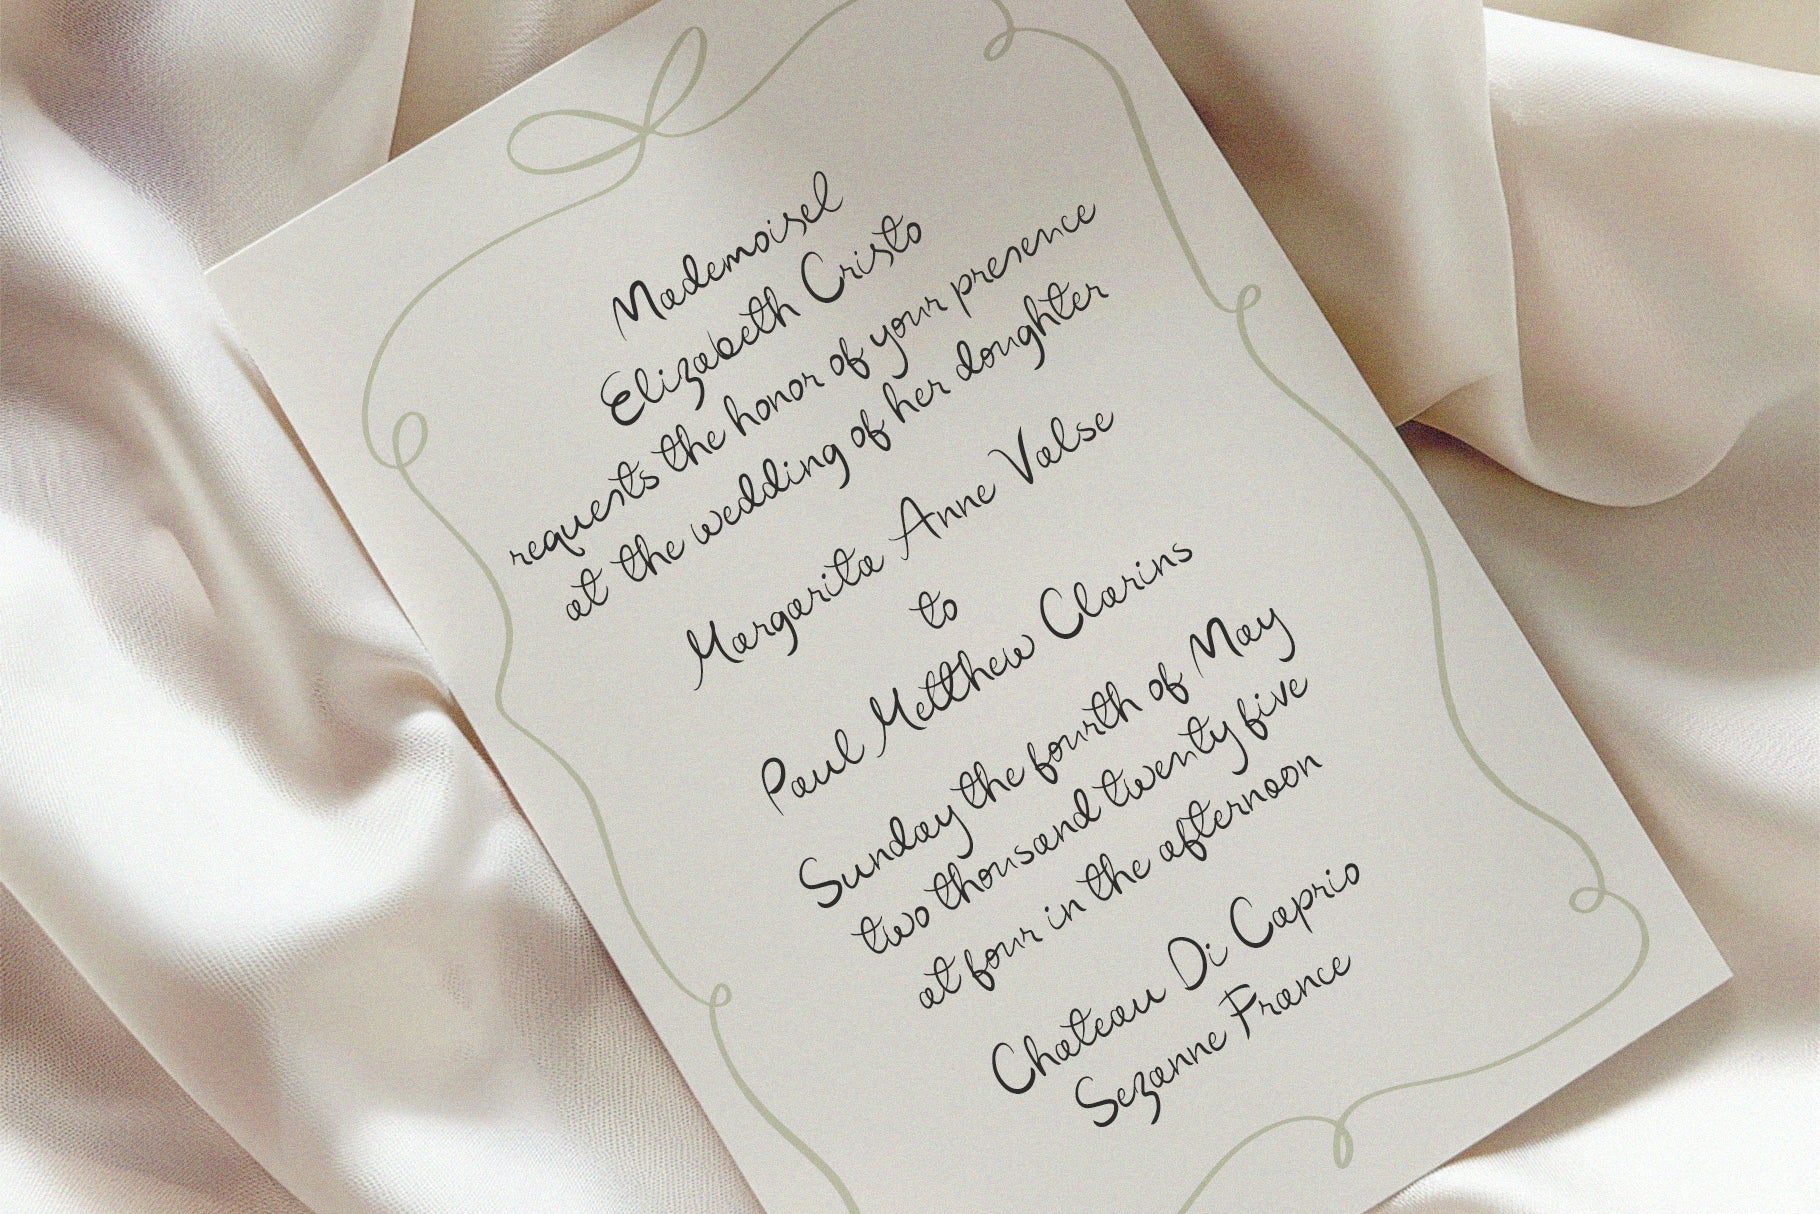 Mademoisel
Elizabeth Cristo
requests the honor of your presence
at the wedding of her doughter
Margarita Anne Valse
to
Paul Metthew Clarins
Sunday the fourth of May
two thousand twenty five
at four in the afternoon
Chateau Di Caprio
Sezanne France